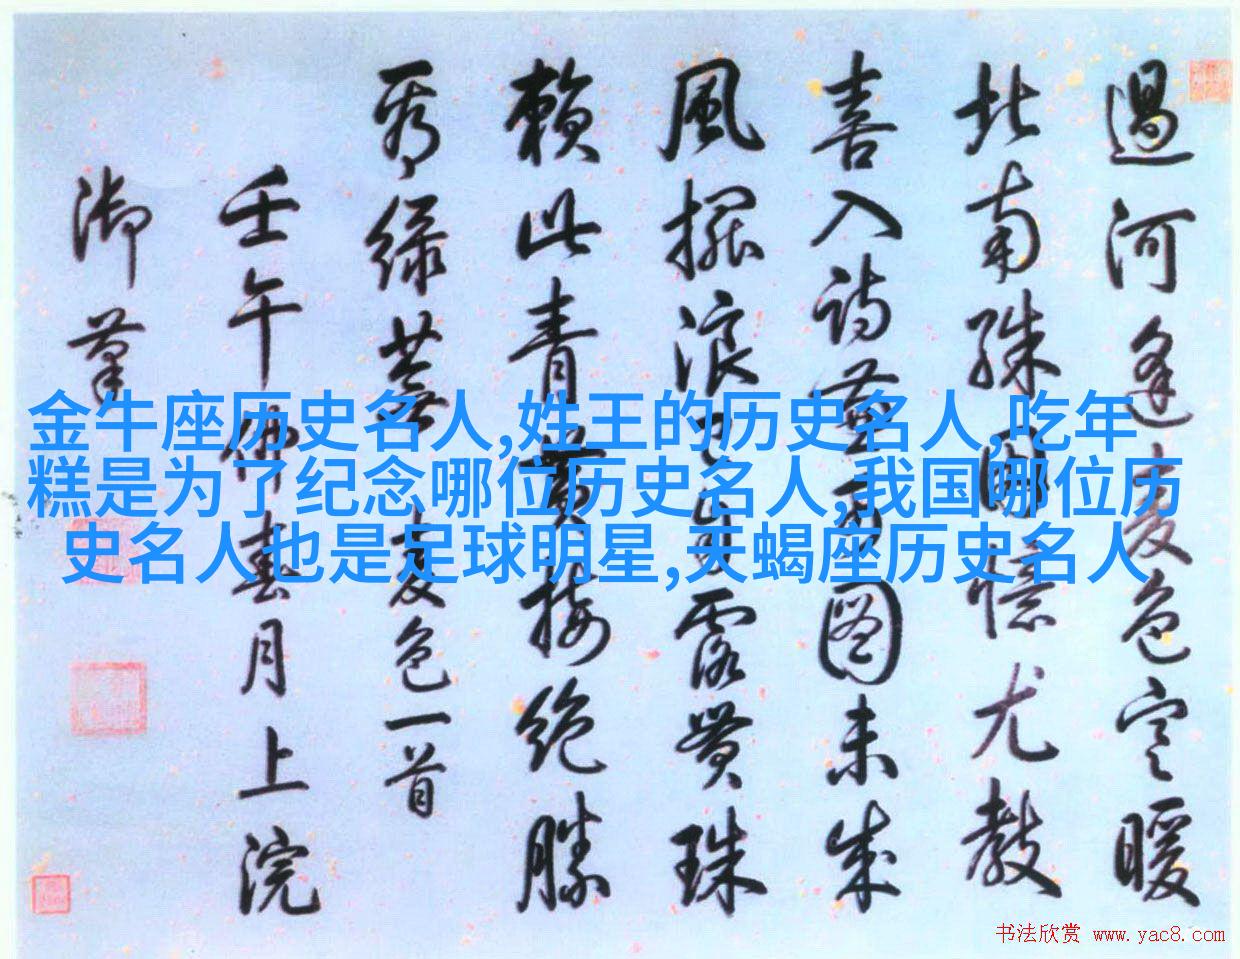 過河逢麦色宜暖
北南殊因憶尤教
喜入詩荃豆圖未成
風擺浪
露貫珠
賴此青黃接絶勝
秀緑蕪
麦色一首
壬午仲春月上浣
御筆
金牛座历史名人,姓王的历史名人,吃年
糕是为了纪念哪位历史名人,我国哪位历
史名人也是足球明星,天蝎座历史名人
书法欣赏 www.yac8.com